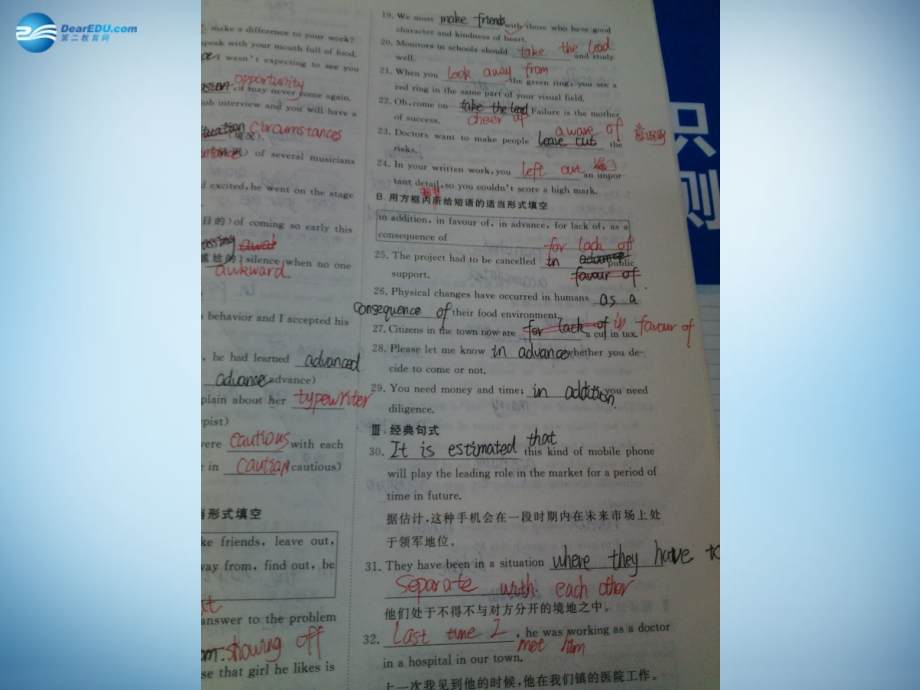 DearEDU.com
第二教育网
make a difference to your work?
speak with your mouth full of food.
wasn't expecting to see you
opportunity
it may never come again.
job interview and you will have a
circumstances
) of several musicians
f excited, he went on the stage
目的) of coming so early this
awkward
尴尬的) silence when no one
n behavior and I accepted his
, he had learned advanced
advance advance)
plain about her typewriter
pist)
were cautious with each
e in caution cautious)
当形式填空
ke friends, leave out,
way from, find out, be
answer to the problem
showing off
se that girl he likes is
19. We must make friends with those who have good
character and kindness of heart.
20. Monitors in schools should take the lead and study
well.
21. When you look away from the green ring, you see a
red ring in the same part of your visual field.
22. Oh, come on take the lead Failure is the mother
of success. cheer up
23. Doctors want to make people leave out the
aware of
risks.
24. In your written work, you left out an impor
tant detail, so you couldn't score a high mark.
B. 用方框内所给短语的适当形式填空
in addition, in favour of, in advance, for lack of, as a
consequence of
for lack of
25. The project had to be cancelled in advance public
support. favour of
26. Physical changes have occurred in humans as a
consequence of their food environment.
27. Citizens in the town now are for lack of in favour of a cut in tax.
28. Please let me know in advance whether you de-
cide to come or not.
29. You need money and time; in addition you need
diligence.
Ⅲ. 经典句式
30. It is estimated that this kind of mobile phone
will play the leading role in the market for a period of
time in future.
据估计,这种手机会在一段时期内在未来市场上处
于领军地位。
31. They have been in a situation where they have to
separate with each other
他们处于不得不与对方分开的境地之中。
32. Last time I met him, he was working as a doctor
in a hospital in our town.
上一次我见到他的时候,他在我们镇的医院工作。
只
则